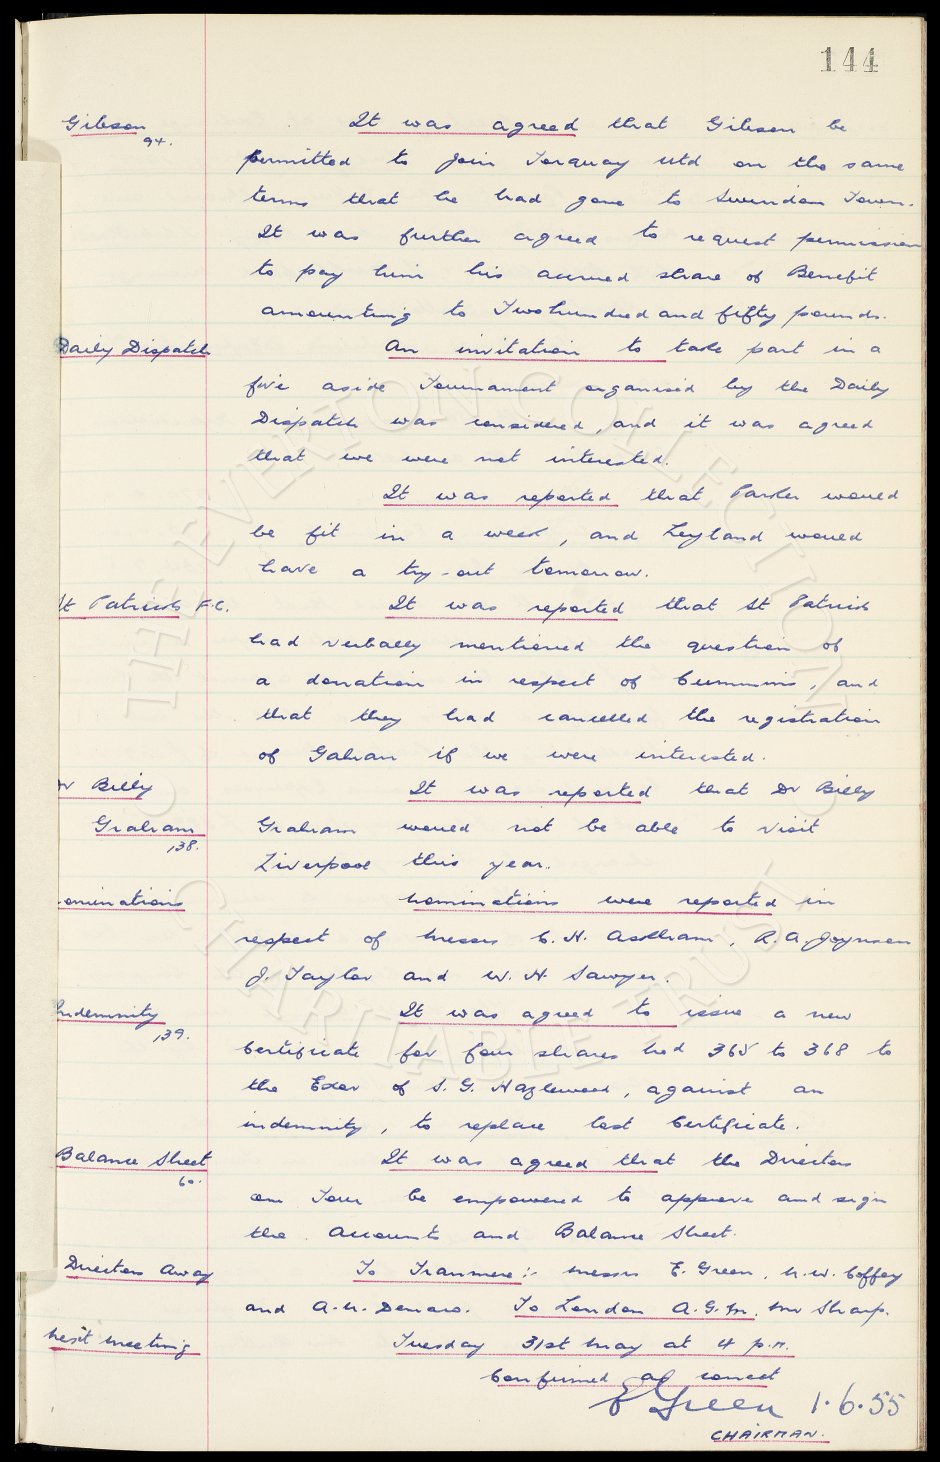 144
Gibson
94.
It was agreed that Gibson be
permitted to join Torquay Utd on the same
terms that he had gone to Swindon Town.
It was further agreed to request permission
to pay him his accrued share of Benefit
amounting to Two hundred and fifty pounds.
Daily Dispatch
An invitation to take part in a
five aside Tournament organised by the Daily
Dispatch was considered, and it was agreed
that we were not interested.
It was reported that Parker would
be fit in a week, and Leyland would
have a try-out tomorrow.
St Patricks F.C.
It was reported that St Patricks
had verbally mentioned the question of
a donation in respect of Cummins, and
that they had cancelled the registration
of Gahan if we were interested.
Dr Billy
Graham
138.
It was reported that Dr Billy
Graham would not be able to visit
Liverpool this year.
ominations
Nominations were reported in
respect of Messrs C. H. Askham, R. A. Joynson
J. Taylor and W. H. Sawyer.
Indemnity
139.
It was agreed to issue a new
Certificate for four shares Nod 365 to 368 to
the Exor of S. G. Hazlewood, against an
indemnity, to replace lost Certificate.
Balance Sheet
60.
It was agreed that the Directors
on Tour be empowered to approve and sign
the Accounts and Balance Sheet.
Directors Away
To Tranmere:- Messrs E. Green, N. W. Coffey
and A. H. Denaro. To London A.G.M. Mr Sharp.
Next meeting
Tuesday 31st May at 4 p.m.
Confirmed as correct
E Green 1.6.55
CHAIRMAN.
THE EVERTON COLLECTION
CHARITABLE TRUST